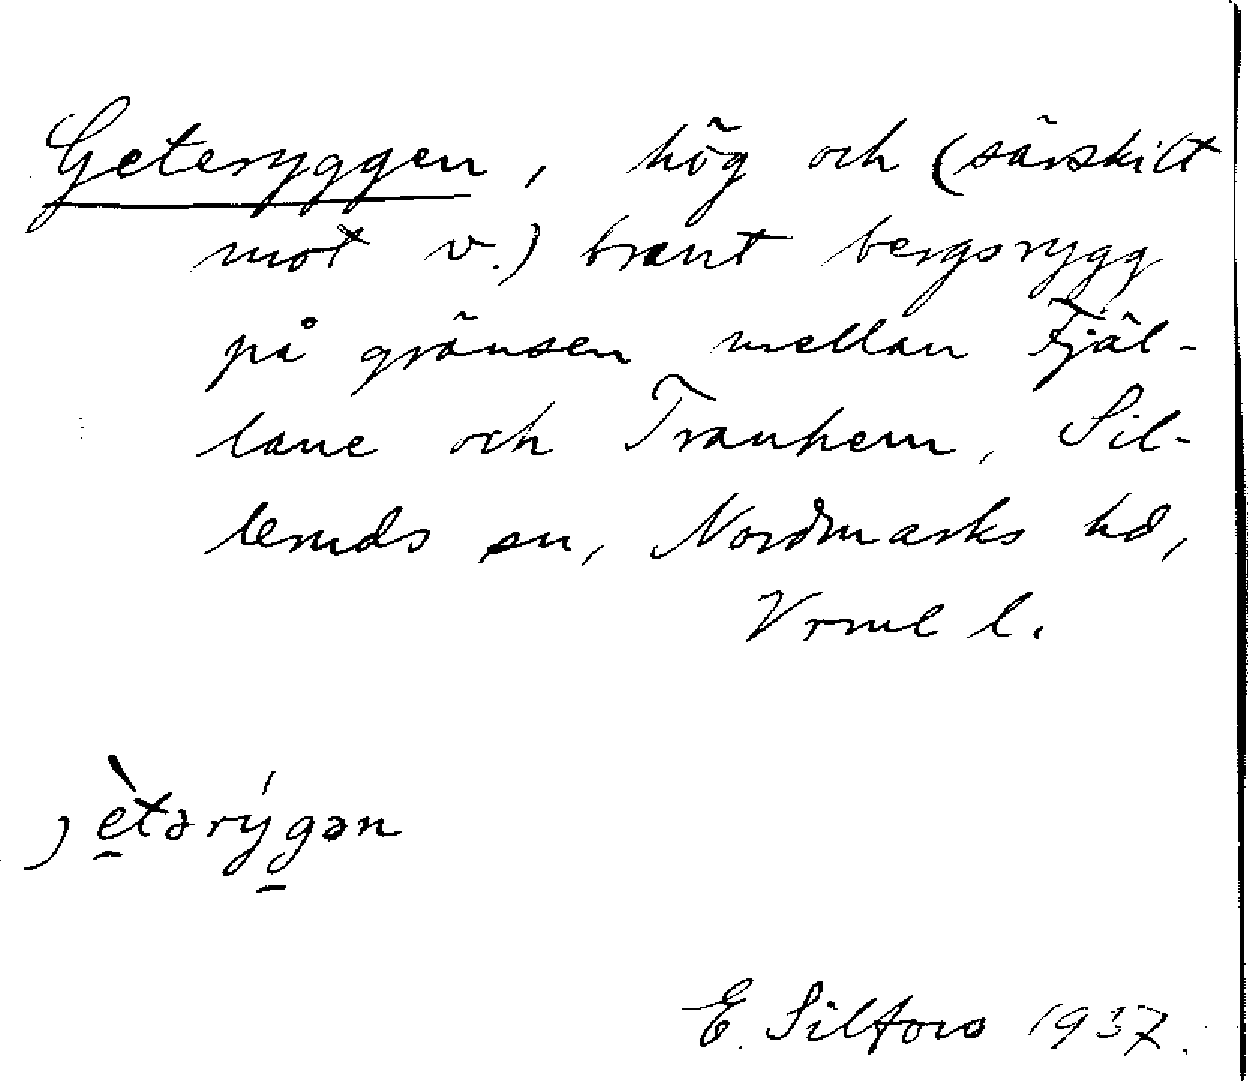 Geteryggen, hög och (särskilt
mot v.) brant bergsrygg
på gränsen mellan Fjäl-
lane och Tranhem, Sil-
leruds sn, Nordmarks hd,
Vrml l.
jètərýgən
E. Silfors 1937.